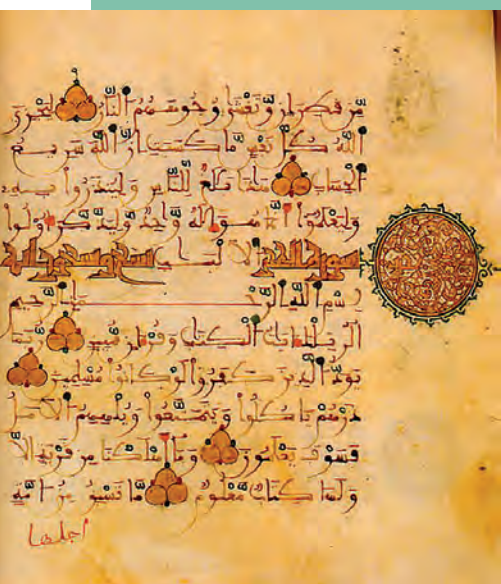 مّن قطران وّتغشى وجوههم النّار ليجزي
اللّه كلّ نفس مّا كسبت إنّ اللّه سريع
الحساب هذا بلغ لّلنّاس ولينذروا به
وليعلموا أنّما هو إله وّاحد وليذّكر أولوا
سورة الحجر الالبب تسع وتسعون اية
بسم اللّه الرّحمن الرّحيم
الر تلك ءايت الكتب وقرءان مّبين رّبما
يودّ الذين كفروا لو كانوا مسلمين
ذرهم ياكلوا ويتمتّعوا ويلههم الامل
فسوف يعلمون وما أهلكنا من قرية الاّ
ولها كتاب مّعلوم مّا تسبق من امّة
اجلها